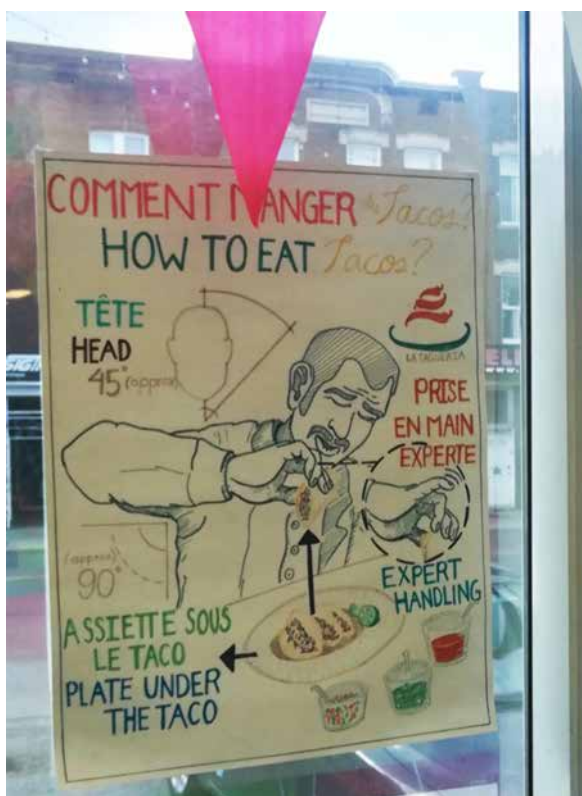 COMMENT MANGER de Tacos?
HOW TO EAT Tacos?
TÊTE
HEAD
45° (approx)
LA TAQUERIA
PRISE
EN MAIN
EXPERTE
(approx)
90°
EXPERT
HANDLING
ASSIETTE SOUS
LE TACO
PLATE UNDER
THE TACO